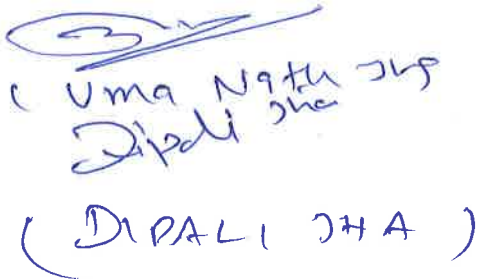 ( Uma Nath Jha
Dipali Jha
( DIPALI JHA )